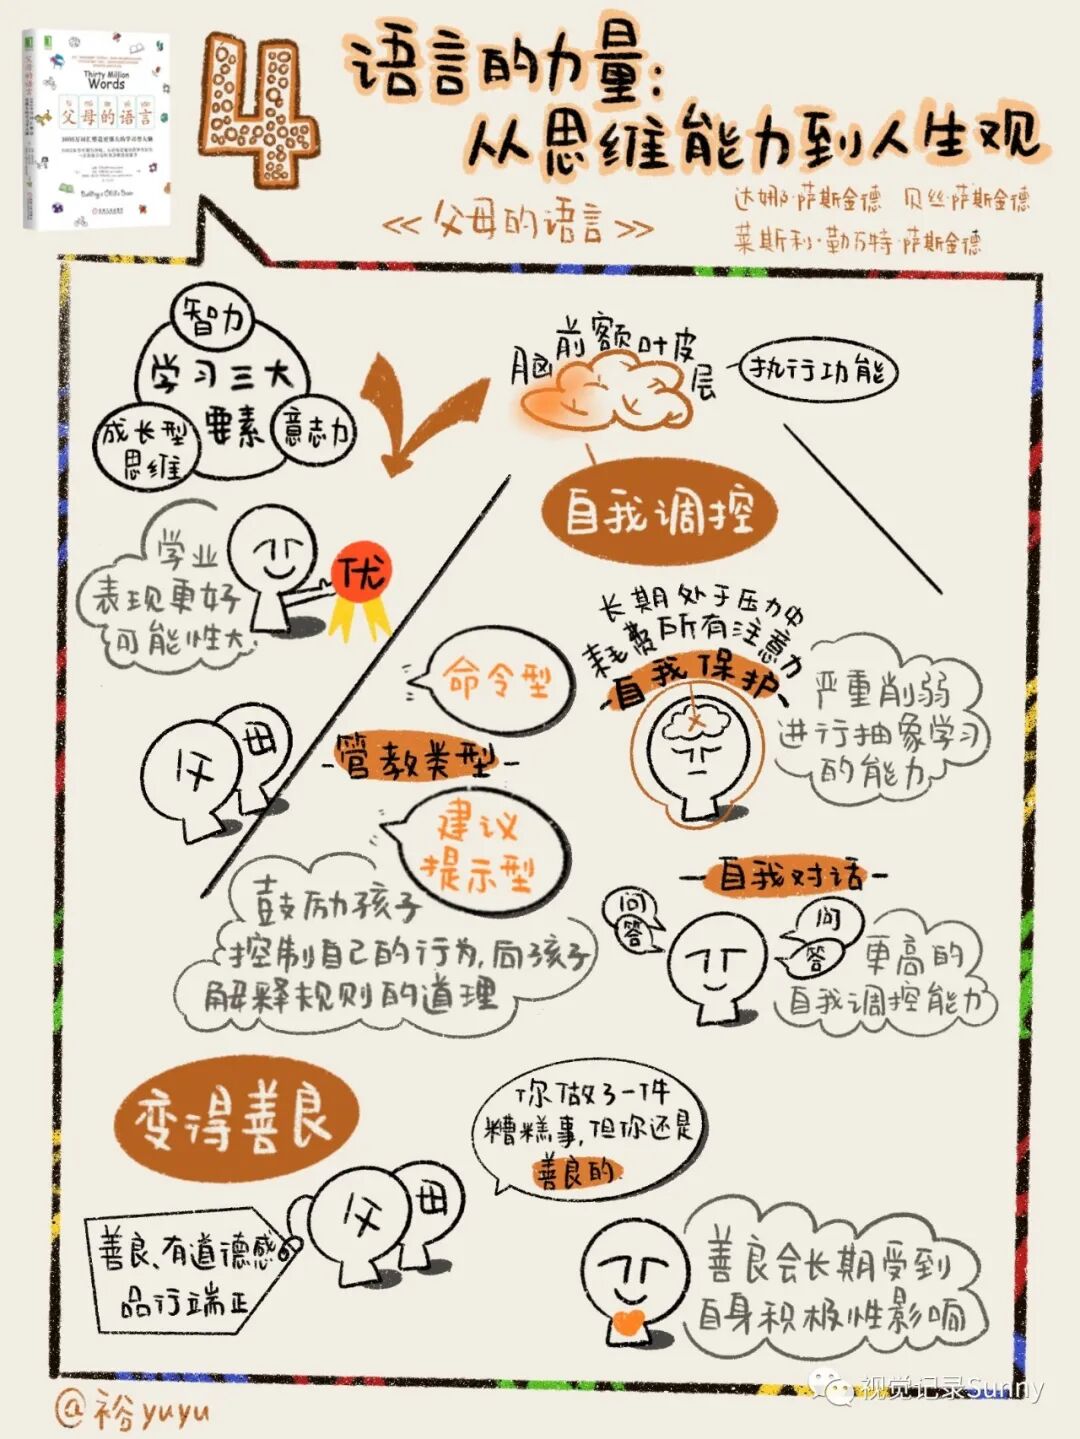 4
语言的力量:
从思维能力到人生观
<<父母的语言>>
达娜·萨斯金德 贝丝·萨斯金德
莱斯利·勒万特·萨斯金德
Thirty Million
Words
父母的语言
智力
学习三大
要素
成长型
思维
意志力
脑前额叶皮层
执行功能
自我调控
学业
表现更好
可能性大
优
长期处于压力中
耗费所有注意力
自我保护
严重削弱
进行抽象学习
的能力
父母
命令型
管教类型
建议
提示型
鼓励孩子
控制自己的行为,向孩子
解释规则的道理
自我对话
问
答
问
答
更高的
自我调控能力
变得善良
父母
善良、有道德感
品行端正
你做了一件
糟糕事,但你还是
善良的
善良会长期受到
自身积极性影响
@裕yuyu
视觉记录Sunny